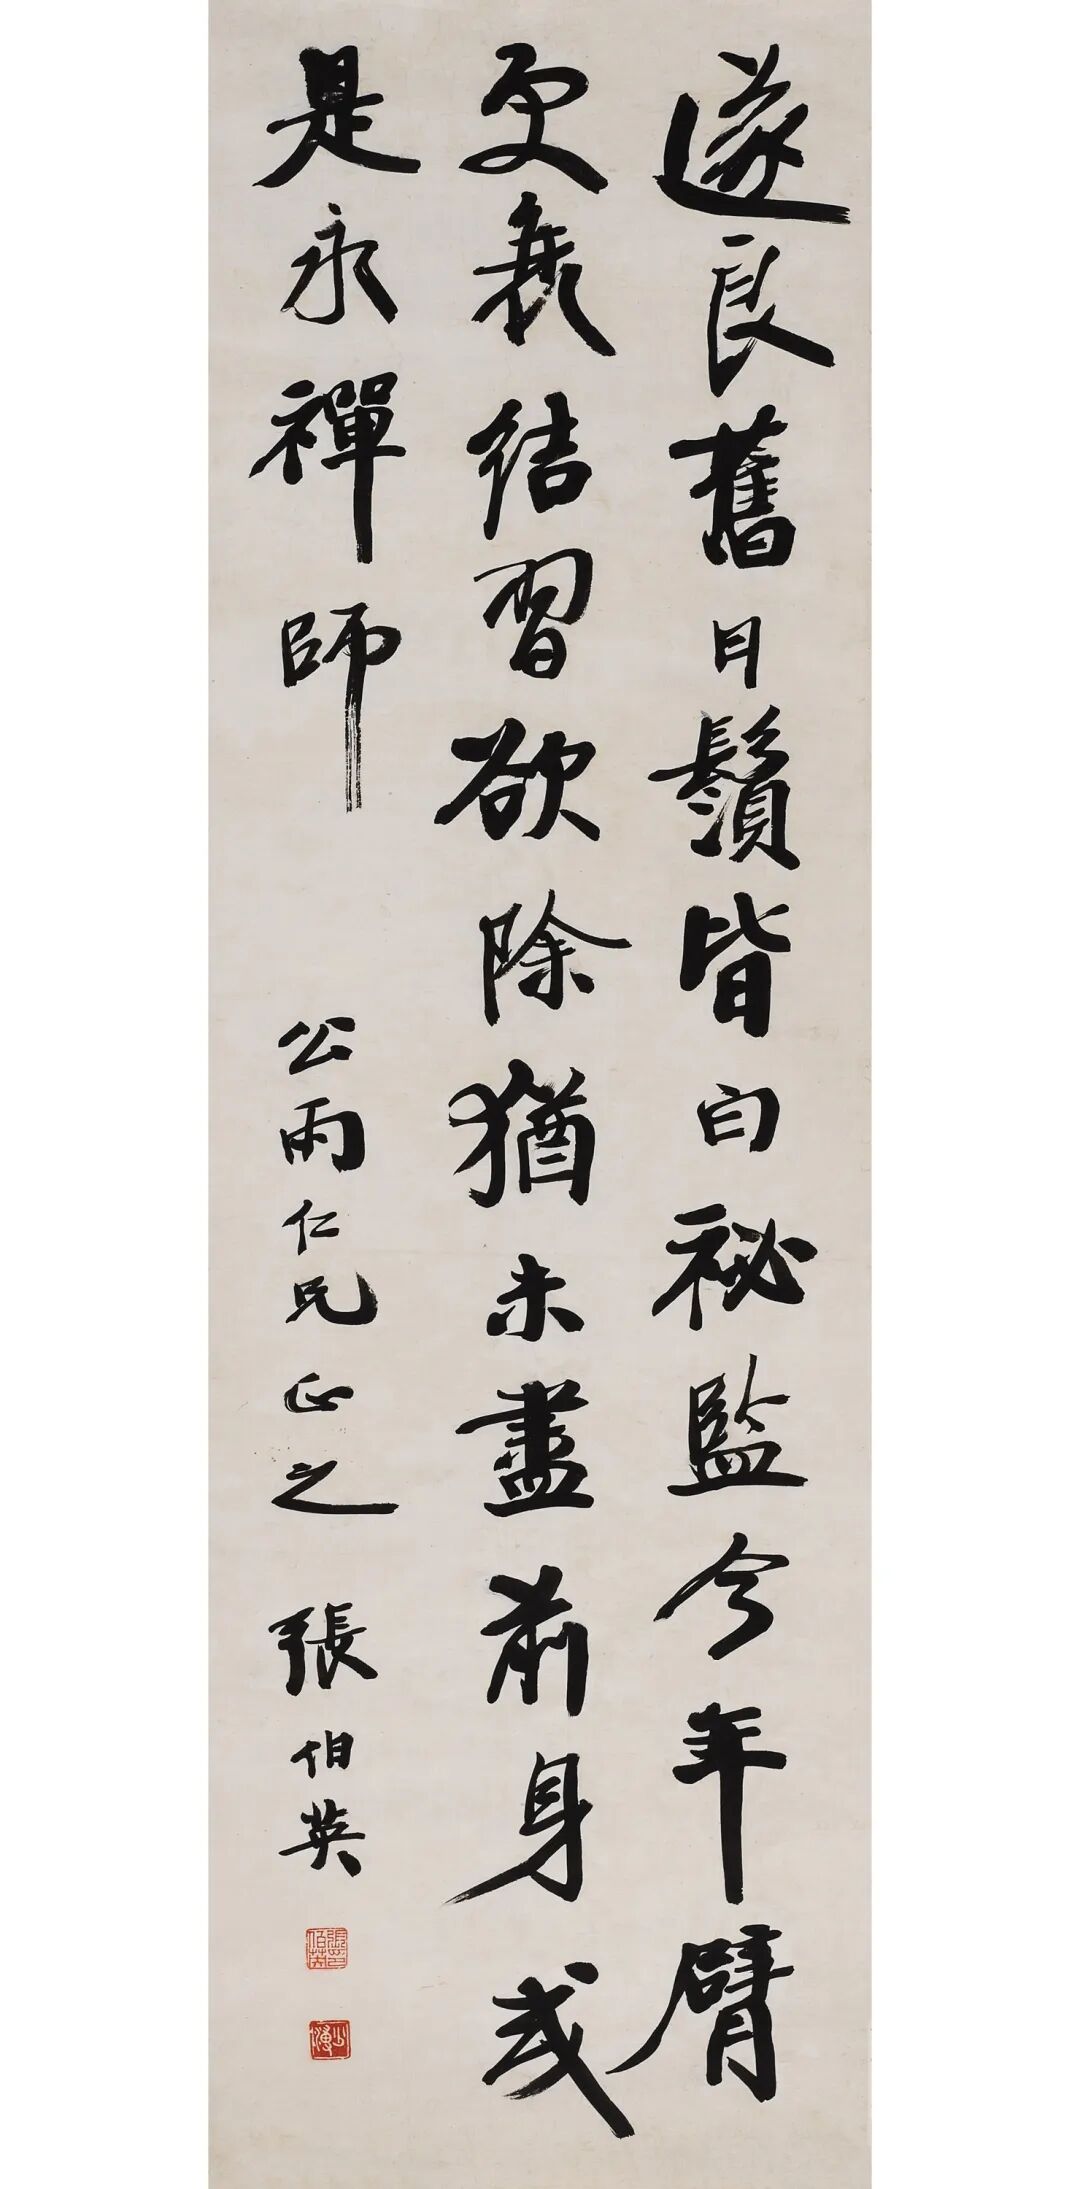 遂良舊日鬚皆白祕監今年臂
更衰結習欲除猶未盡前身或
是永禪師
公雨仁兄正之
張伯英
張伯英印
少溥